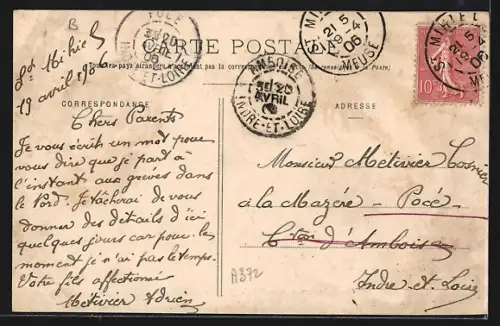 B
CARTE POSTALE
CORRESPONDANCE
ADRESSE
St Mihiel
19 avril 1906
Chers Parents
Je vous écris un mot pour
vous dire que je part à
l'instant aux grèves dans
le Nord. Je tâcherai de vous
donner des détails d'ici
quelques jours car pour le
moment je n'ai pas le temps.
Votre fils affectionné
Métivier Adrien
Monsieur Métivier Cosnier
à la Mazère - Pocé
Cton d'Amboise
Indre et Loire
A372
POCÉ
20
AVRIL
06
INDRE-ET-LOIRE
AMBOISE
20
AVRIL
INDRE-ET-LOIRE
ST MIHIEL
21 5
19-4
06
MEUSE
ST MIHIEL
10